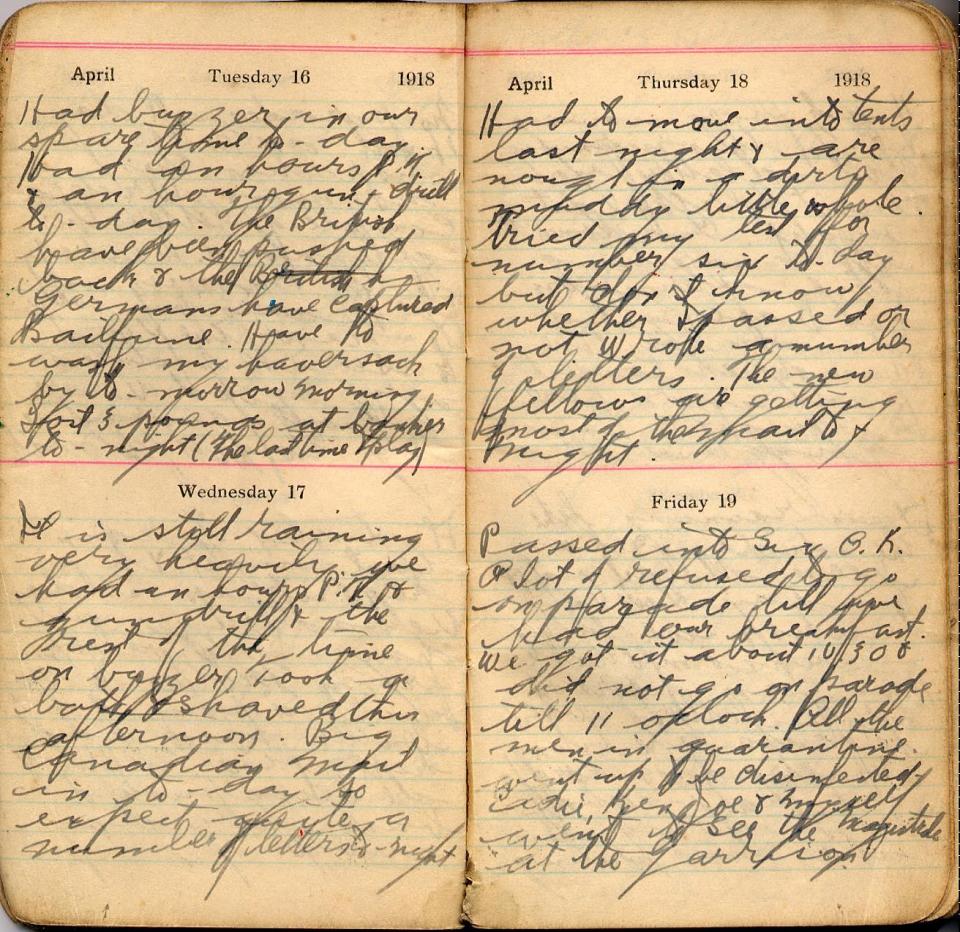 April Tuesday 16 1918
Had buzzer in our
spare time to-day.
Had an hours P.T.
& an hour gun drill
to-day. The British
have been pushed
back & the British
Germans have captured
Bailfuine. Have to
wash my haversack
by to-morrow morning
Lost 3 pounds at banker
to-night (The last time I play)
Wednesday 17
It is still raining
very heavily. We
had an hours P.T. &
gun drill & the
rest of the time
on buzzer. Took a
bath & shaved this
afternoon. Big
Canadian mail
in to-day so
expect quite a
number of letters to-night
April Thursday 18 1918
Had to move into tents
last night & are
now in a dirty
muddy little whole.
Tried my test for
number six to-day
but don't know
whether I passed or
not. Wrote a number
of letters. The new
fellows are getting
most of the
night.
Friday 19
Passed into Six O.K.
A lot of refused to go
on parade till we
had our breakfast.
We got it about 10/30 &
did not go on parade
till 11 o'clock. All the
men in quarantine
went up to be disinfected.
Eadie, Ken, Joe & myself
went to see the Magistrate
at the Garrison.